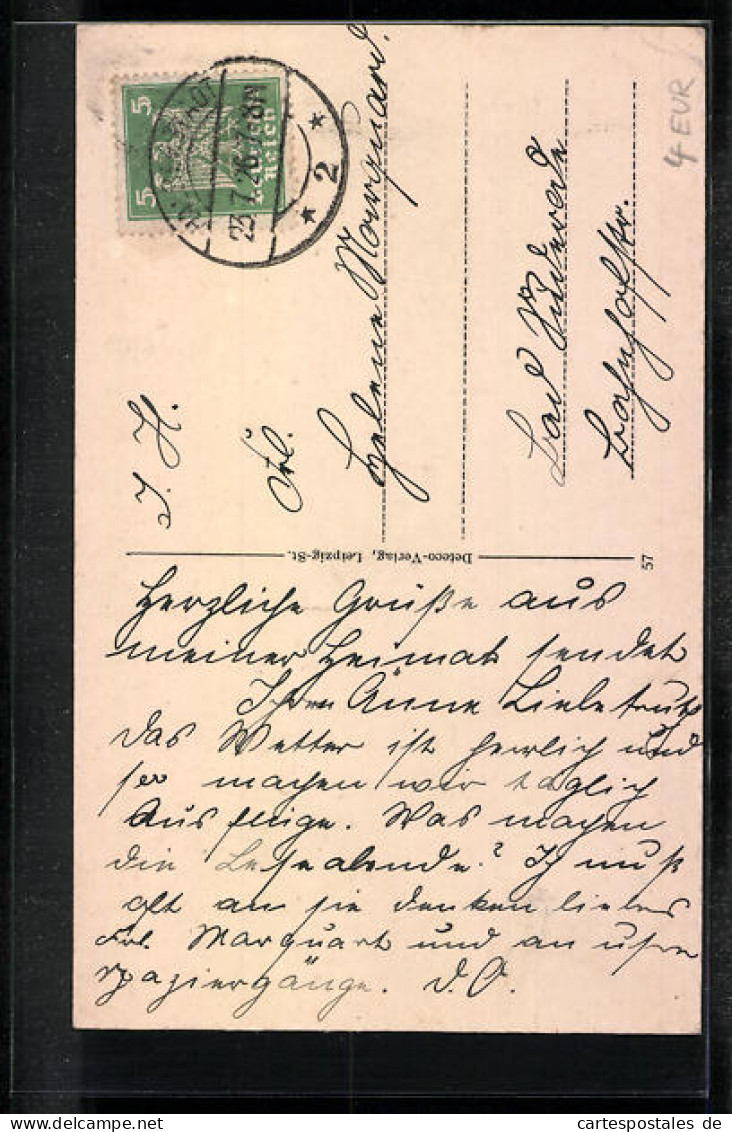 5
5
Deutsches
Reich
23.7.26.7-8N
* 2 *
4 EUR
I. H.
Frl.
Helene Marquard.
Bad Suderode
Bahnhofstr.
Deteco-Verlag, Leipzig-St.
57
Herzliche Grüße aus
meiner Heimat sendet
Ihnen Änne Liebetruth
das Wetter ist herrlich und
so machen wir täglich
Ausflüge. Was machen
die Leseabende? Ich muß
oft an sie denken liebes
Frl. Marquart und an unsre
Spaziergänge. D.O.
delcampe.net
cartespostales de